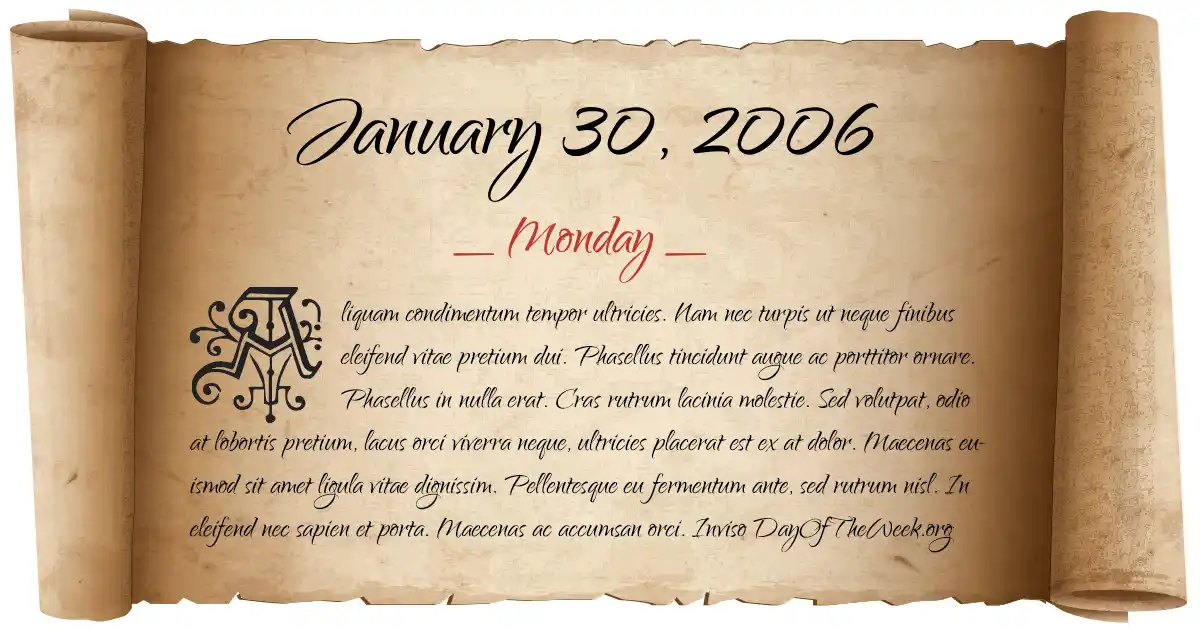 January 30, 2006
Monday
Aliquam condimentum tempor ultricies. Nam nec turpis ut neque finibus
eleifend vitae pretium dui. Phasellus tincidunt augue ac porttitor ornare.
Phasellus in nulla erat. Cras rutrum lacinia molestie. Sed volutpat, odio
at lobortis pretium, lacus orci viverra neque, ultricies placerat est ex at dolor. Maecenas eu-
ismod sit amet ligula vitae dignissim. Pellentesque eu fermentum ante, sed rutrum nisl. In
eleifend nec sapien et porta. Maecenas ac accumsan orci. Inviso DayOfTheWeek.org